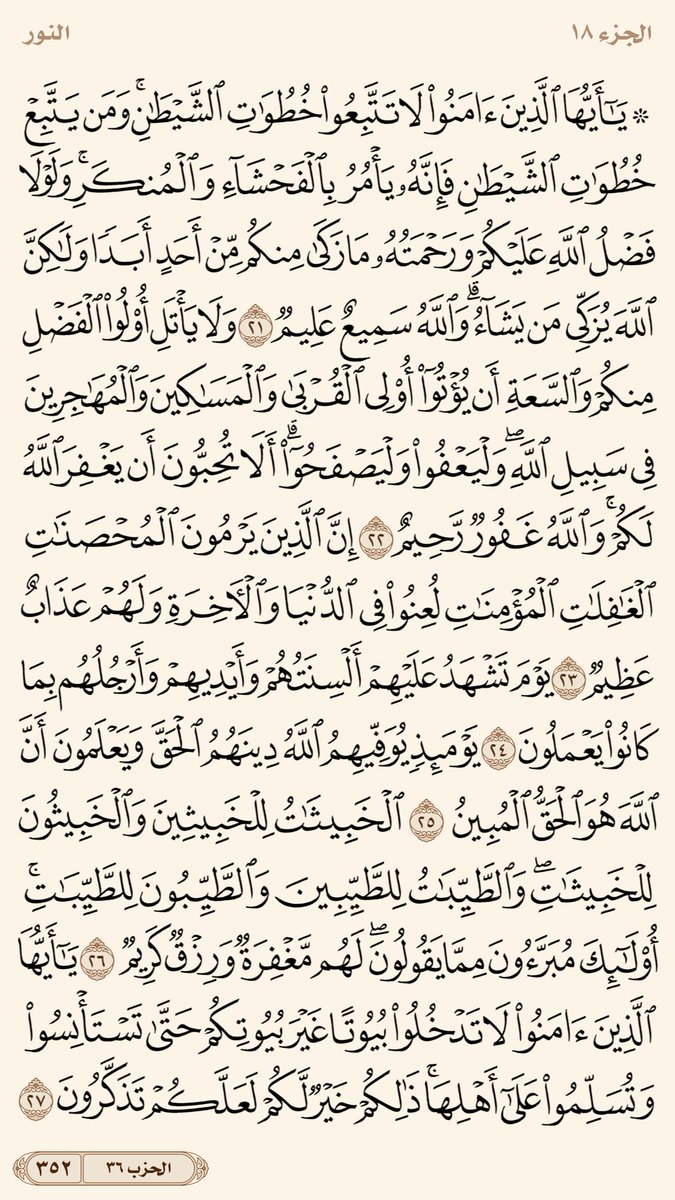 الجزء ١٨
النور
۞ يَـٰٓأَيُّهَا ٱلَّذِينَ ءَامَنُوا۟ لَا تَتَّبِعُوا۟ خُطُوَٰتِ ٱلشَّيْطَـٰنِ ۚ وَمَن يَتَّبِعْ
خُطُوَٰتِ ٱلشَّيْطَـٰنِ فَإِنَّهُۥ يَأْمُرُ بِٱلْفَحْشَآءِ وَٱلْمُنكَرِ ۚ وَلَوْلَا
فَضْلُ ٱللَّهِ عَلَيْكُمْ وَرَحْمَتُهُۥ مَا زَكَىٰ مِنكُم مِّنْ أَحَدٍ أَبَدًا وَلَـٰكِنَّ
ٱللَّهَ يُزَكِّى مَن يَشَآءُ ۗ وَٱللَّهُ سَمِيعٌ عَلِيمٌ ٢١ وَلَا يَأْتَلِ أُو۟لُوا۟ ٱلْفَضْلِ
مِنكُمْ وَٱلسَّعَةِ أَن يُؤْتُوٓا۟ أُو۟لِى ٱلْقُرْبَىٰ وَٱلْمَسَـٰكِينَ وَٱلْمُهَـٰجِرِينَ
فِى سَبِيلِ ٱللَّهِ ۖ وَلْيَعْفُوا۟ وَلْيَصْفَحُوٓا۟ ۗ أَلَا تُحِبُّونَ أَن يَغْفِرَ ٱللَّهُ
لَكُمْ ۚ وَٱللَّهُ غَفُورٌ رَّحِيمٌ ٢٢ إِنَّ ٱلَّذِينَ يَرْمُونَ ٱلْمُحْصَنَـٰتِ
ٱلْغَـٰفِلَـٰتِ ٱلْمُؤْمِنَـٰتِ لُعِنُوا۟ فِى ٱلدُّنْيَا وَٱلْـَٔاخِرَةِ وَلَهُمْ عَذَابٌ
عَظِيمٌ ٢٣ يَوْمَ تَشْهَدُ عَلَيْهِمْ أَلْسِنَتُهُمْ وَأَيْدِيهِمْ وَأَرْجُلُهُم بِمَا
كَانُوا۟ يَعْمَلُونَ ٢٤ يَوْمَئِذٍ يُوَفِّيهِمُ ٱللَّهُ دِينَهُمُ ٱلْحَقَّ وَيَعْلَمُونَ أَنَّ
ٱللَّهَ هُوَ ٱلْحَقُّ ٱلْمُبِينُ ٢٥ ٱلْخَبِيثَـٰتُ لِلْخَبِيثِينَ وَٱلْخَبِيثُونَ
لِلْخَبِيثَـٰتِ ۖ وَٱلطَّيِّبَـٰتُ لِلطَّيِّبِينَ وَٱلطَّيِّبُونَ لِلطَّيِّبَـٰتِ ۚ
أُو۟لَـٰٓئِكَ مُبَرَّءُونَ مِمَّا يَقُولُونَ ۖ لَهُم مَّغْفِرَةٌ وَرِزْقٌ كَرِيمٌ ٢٦ يَـٰٓأَيُّهَا
ٱلَّذِينَ ءَامَنُوا۟ لَا تَدْخُلُوا۟ بُيُوتًا غَيْرَ بُيُوتِكُمْ حَتَّىٰ تَسْتَأْنِسُوا۟
وَتُسَلِّمُوا۟ عَلَىٰٓ أَهْلِهَا ۚ ذَٰلِكُمْ خَيْرٌ لَّكُمْ لَعَلَّكُمْ تَذَكَّرُونَ ٢٧
الحزب ٣٦
٣٥٢